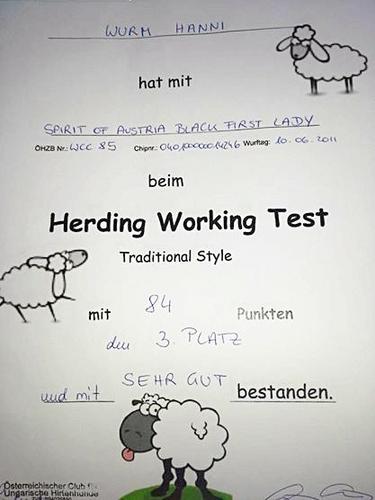 WURM HANNI
hat mit
SPIRIT OF AUSTRIA BLACK FIRST LADY
ÖHZB Nr.: WCC 85 Chipnr.: Wurftag: 10.06.2011
beim
Herding Working Test
Traditional Style
mit 84 Punkten
den 3. PLATZ
und mit SEHR GUT bestanden.
Österreichischer Club
Ungarische Hirtenhunde